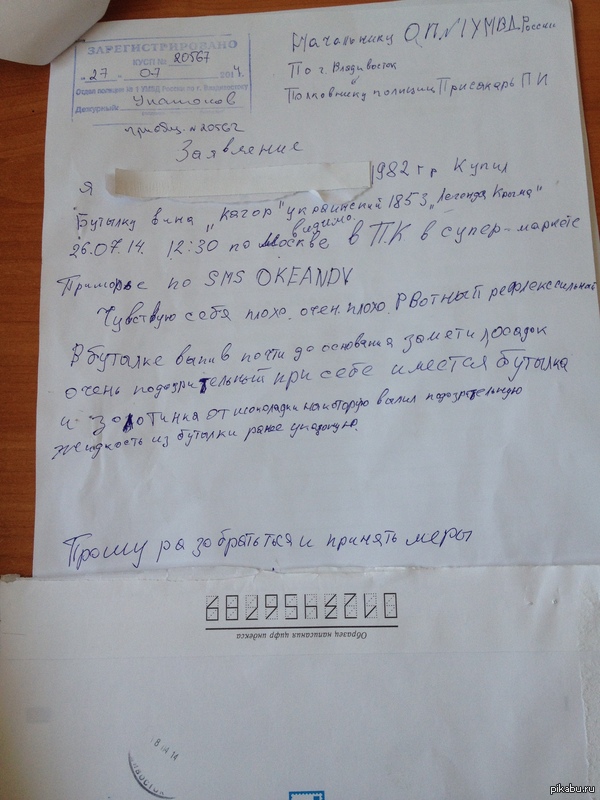 ЗАРЕГИСТРИРОВАНО
КУСП № 20567
"27" 07 2014.
Отдел полиции № 1 УМВД России по г. Владивостоку
Дежурный
Начальнику О.П.№1 УМВД России
По г. Владивосток
Полковнику полиции Присакарь П И
приобщ. №20562
Заявление
Я 1982 гр Купил
Бутылку вина "Кагор" украинский 1853 "Легенда Крыма"
видимо.
26.07.14. 12:30 по Москве в П.К в супер-маркете
Приморье по SMS OKEANDV
Чувствую себя плохо. очен. плохо. Рвотный рефлексильный
В бутылке выпив почти до основания замети л осадок
очень подозрительный при себе имеется бутылка
и золотинка от шоколадки на которую вылил подозрительную
жидкость из бутылки ранее упадошую.
Прошу ра зо браться и принять меры
0123456789
Образец написания цифр индекса
8 04 14
pikabu.ru